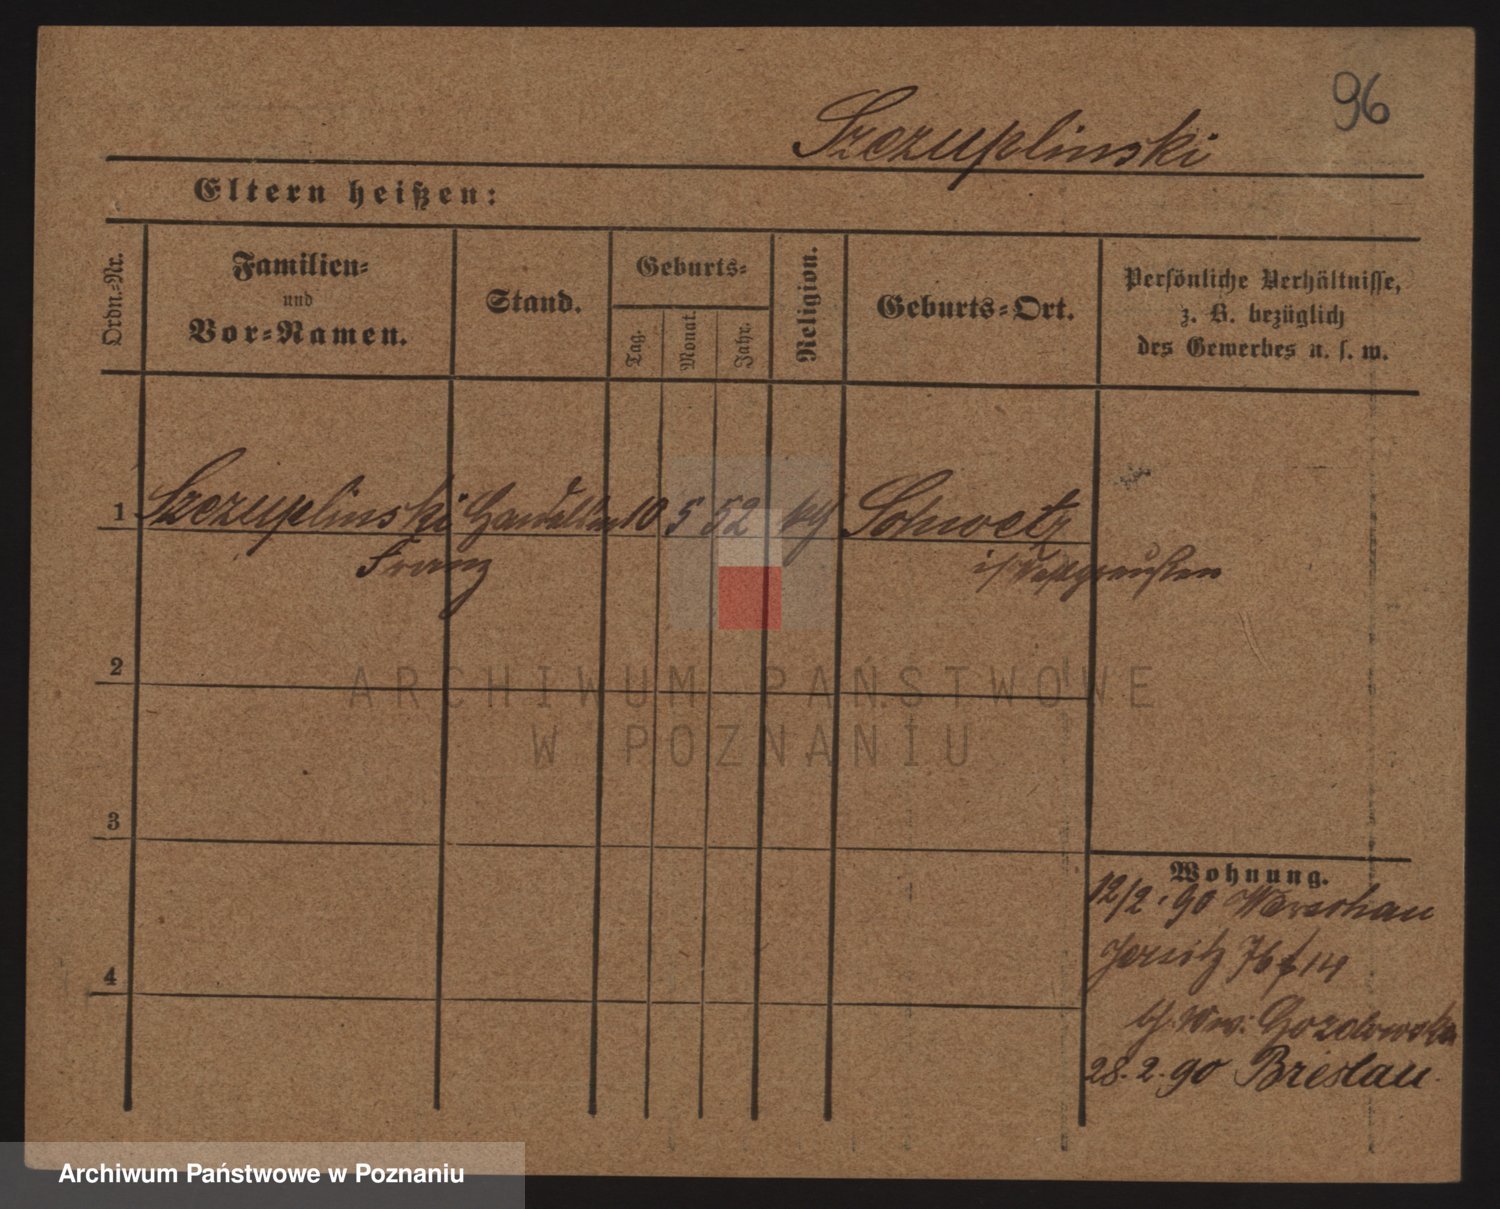 96
Szczuplinski
Eltern heißen:
Ordn.-Nr.
Familien-
und
Vor-Namen.
Stand.
Geburts-
Tag.
Monat.
Jahr.
Religion.
Geburts-Ort.
Persönliche Verhältnisse,
z. B. bezüglich
des Gewerbes u. s. w.
1 Szczuplinski 10 5 52 Schwetz
Franz i/Westpreußen
2
3
4
Wohnung.
12/2. 90 Warschau
Jersitz 76 f 14
28. 2. 90 Breslau.
ARCHIWUM PAŃSTWOWE
W POZNANIU
Archiwum Państwowe w Poznaniu